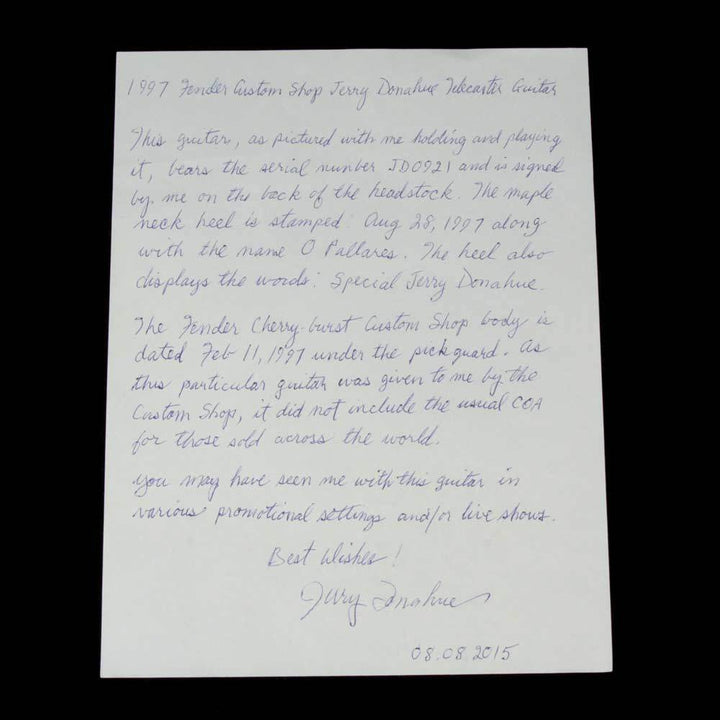 1997 Fender Custom Shop Jerry Donahue Telecaster Guitar
This guitar, as pictured with me holding and playing
it, bears the serial number JD0921 and is signed
by me on the back of the headstock. The maple
neck heel is stamped: Aug 28, 1997 along
with the name O Pallares. The heel also
displays the words: Special Jerry Donahue.
The Fender Cherry-burst Custom Shop body is
dated Feb 11, 1997 under the pickguard. As
this particular guitar was given to me by the
Custom Shop, it did not include the usual COA
for those sold across the world.
You may have seen me with this guitar in
various promotional settings and/or live shows.
Best Wishes!
Jerry Donahue
08.08.2015